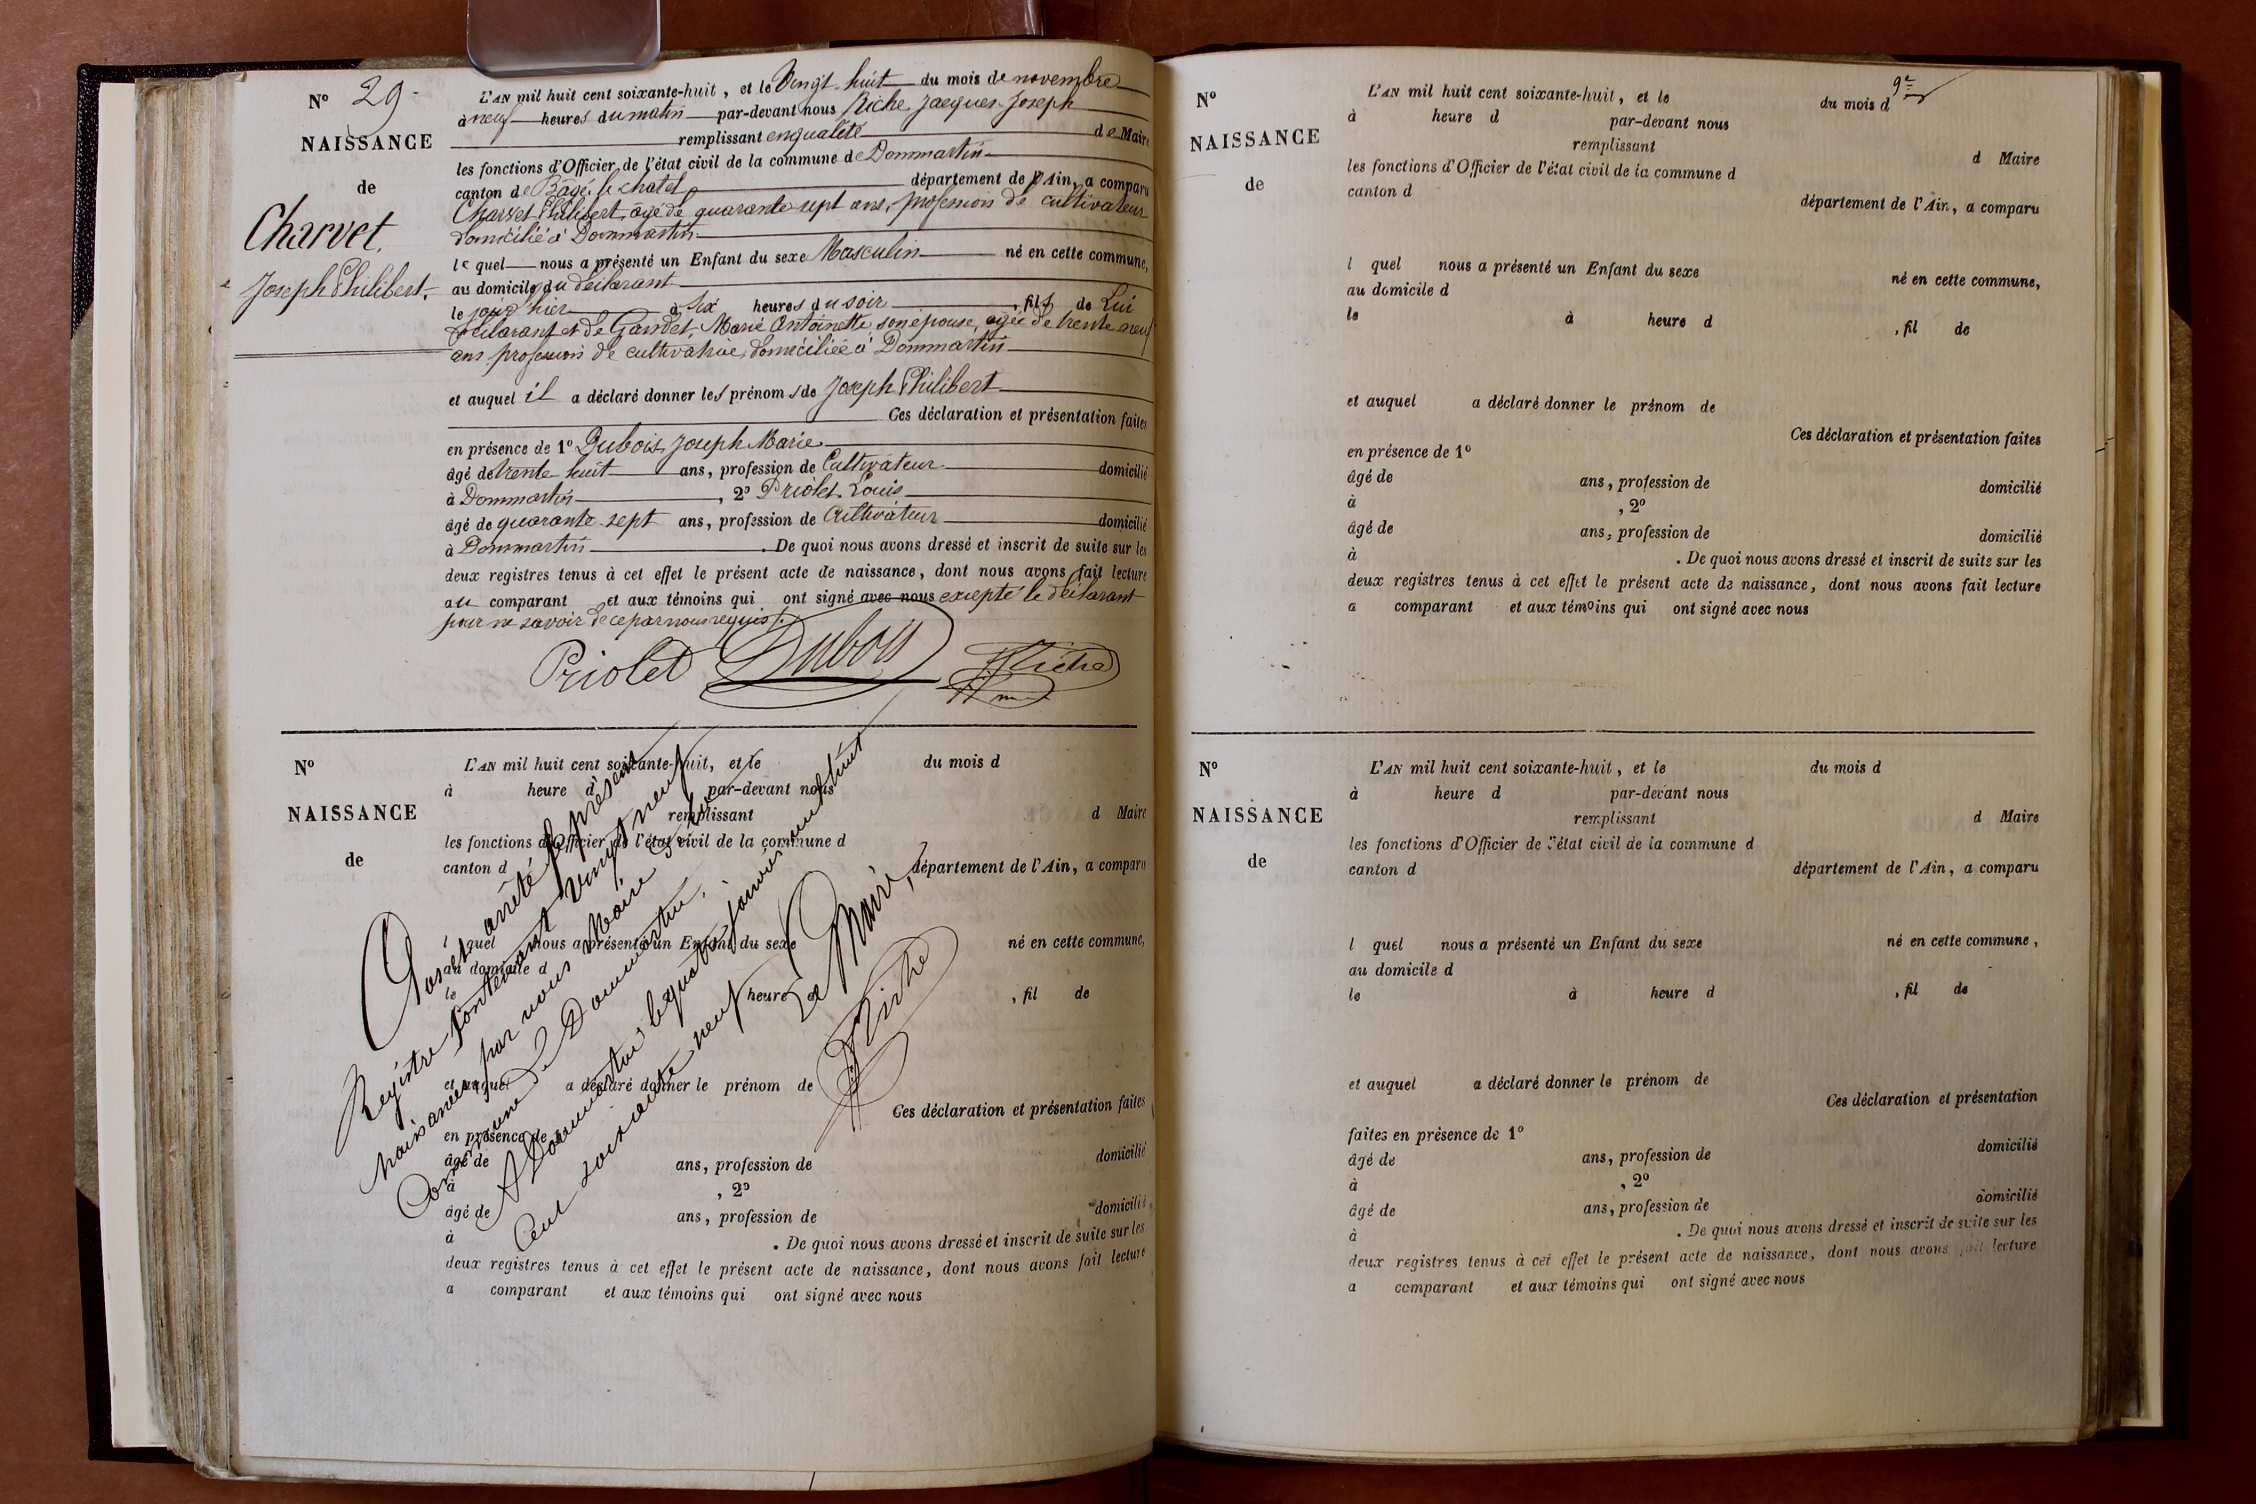 N° 29.
NAISSANCE
de
Charvet,
Joseph Philibert.
L'AN mil huit cent soixante-huit, et le Vingt huit du mois de novembre
à neuf heures du matin par-devant nous Riche Jacques Joseph
remplissant en qualité de Maire
les fonctions d'Officier de l'état civil de la commune de Dommartin
canton de Bâgé le chatel département de l'Ain, a comparu
Charvet Philibert, âgé de quarante sept ans, profession de cultivateur
domicilié à Dommartin
lequel nous a présenté un Enfant du sexe Masculin né en cette commune,
au domicile du déclarant
le jour d'hier à six heures du soir, fils de Lui
déclarant et de Gandet, Marie Antoinette, son épouse, agée de trente neuf
ans profession de cultivatrice, domiciliée à Dommartin
et auquel il a déclaré donner les prénoms de Joseph Philibert
Ces déclaration et présentation faites
en présence de 1° Dubois, Joseph Marie
âgé de trente huit ans, profession de Cultivateur domicilié
à Dommartin, 2° Priolet Louis
âgé de quarante sept ans, profession de Cultivateur domicilié
à Dommartin. De quoi nous avons dressé et inscrit de suite sur les
deux registres tenus à cet effet le présent acte de naissance, dont nous avons fait lecture
au comparant et aux témoins qui ont signé avec nous excepté le déclarant
pour ne savoir de ce par nous requis.
Priolet Dubois JRiche
N°
NAISSANCE
de
L'AN mil huit cent soixante-huit, et le du mois d
à heure d par-devant nous
remplissant d Maire
les fonctions d'Officier de l'état civil de la commune d
canton d département de l'Ain, a comparu
l quel nous a présenté un Enfant du sexe né en cette commune,
au domicile d
le heure d, fil de
et auquel a déclaré donner le prénom de
Ces déclaration et présentation faites
en présence de
âgé de ans, profession de domicilié
à, 2°
âgé de ans, profession de domicilié
à. De quoi nous avons dressé et inscrit de suite sur les
deux registres tenus à cet effet le présent acte de naissance, dont nous avons fait lecture
a comparant et aux témoins qui ont signé avec nous
Clos et arrêté le présent
Registre contenant vingt neuf
naissances, par nous Maire de la
Commune de Dommartin.
A Dommartin le quatre janvier mil huit
Cent soixante neuf
Le Maire,
JRiche
9e
N°
NAISSANCE
de
L'AN mil huit cent soixante-huit, et le du mois d
à heure d par-devant nous
remplissant d Maire
les fonctions d'Officier de l'état civil de la commune d
canton d département de l'Ain, a comparu
l quel nous a présenté un Enfant du sexe né en cette commune,
au domicile d
le à heure d, fil de
et auquel a déclaré donner le prénom de
Ces déclaration et présentation faites
en présence de 1°
âgé de ans, profession de domicilié
à, 2°
âgé de ans, profession de domicilié
à. De quoi nous avons dressé et inscrit de suite sur les
deux registres tenus à cet effet le présent acte de naissance, dont nous avons fait lecture
a comparant et aux témoins qui ont signé avec nous
N°
NAISSANCE
de
L'AN mil huit cent soixante-huit, et le du mois d
à heure d par-devant nous
remplissant d Maire
les fonctions d'Officier de l'état civil de la commune d
canton d département de l'Ain, a comparu
l quel nous a présenté un Enfant du sexe né en cette commune,
au domicile d
le à heure d, fil de
et auquel a déclaré donner le prénom de
Ces déclaration et présentation
faites en présence de 1°
âgé de ans, profession de domicilié
à, 2°
âgé de ans, profession de domicilié
à. De quoi nous avons dressé et inscrit de suite sur les
deux registres tenus à cet effet le présent acte de naissance, dont nous avons fait lecture
a comparant et aux témoins qui ont signé avec nous